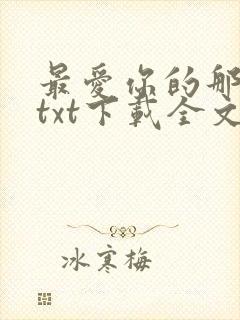 最爱你的那
txt下载全文
冰寒梅